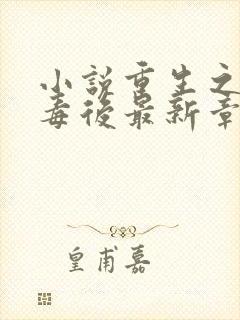 小说重生之
毒后最新章
皇甫嘉